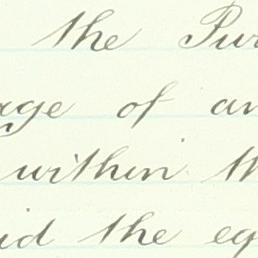 the Pur
age of an
within th
id the eq